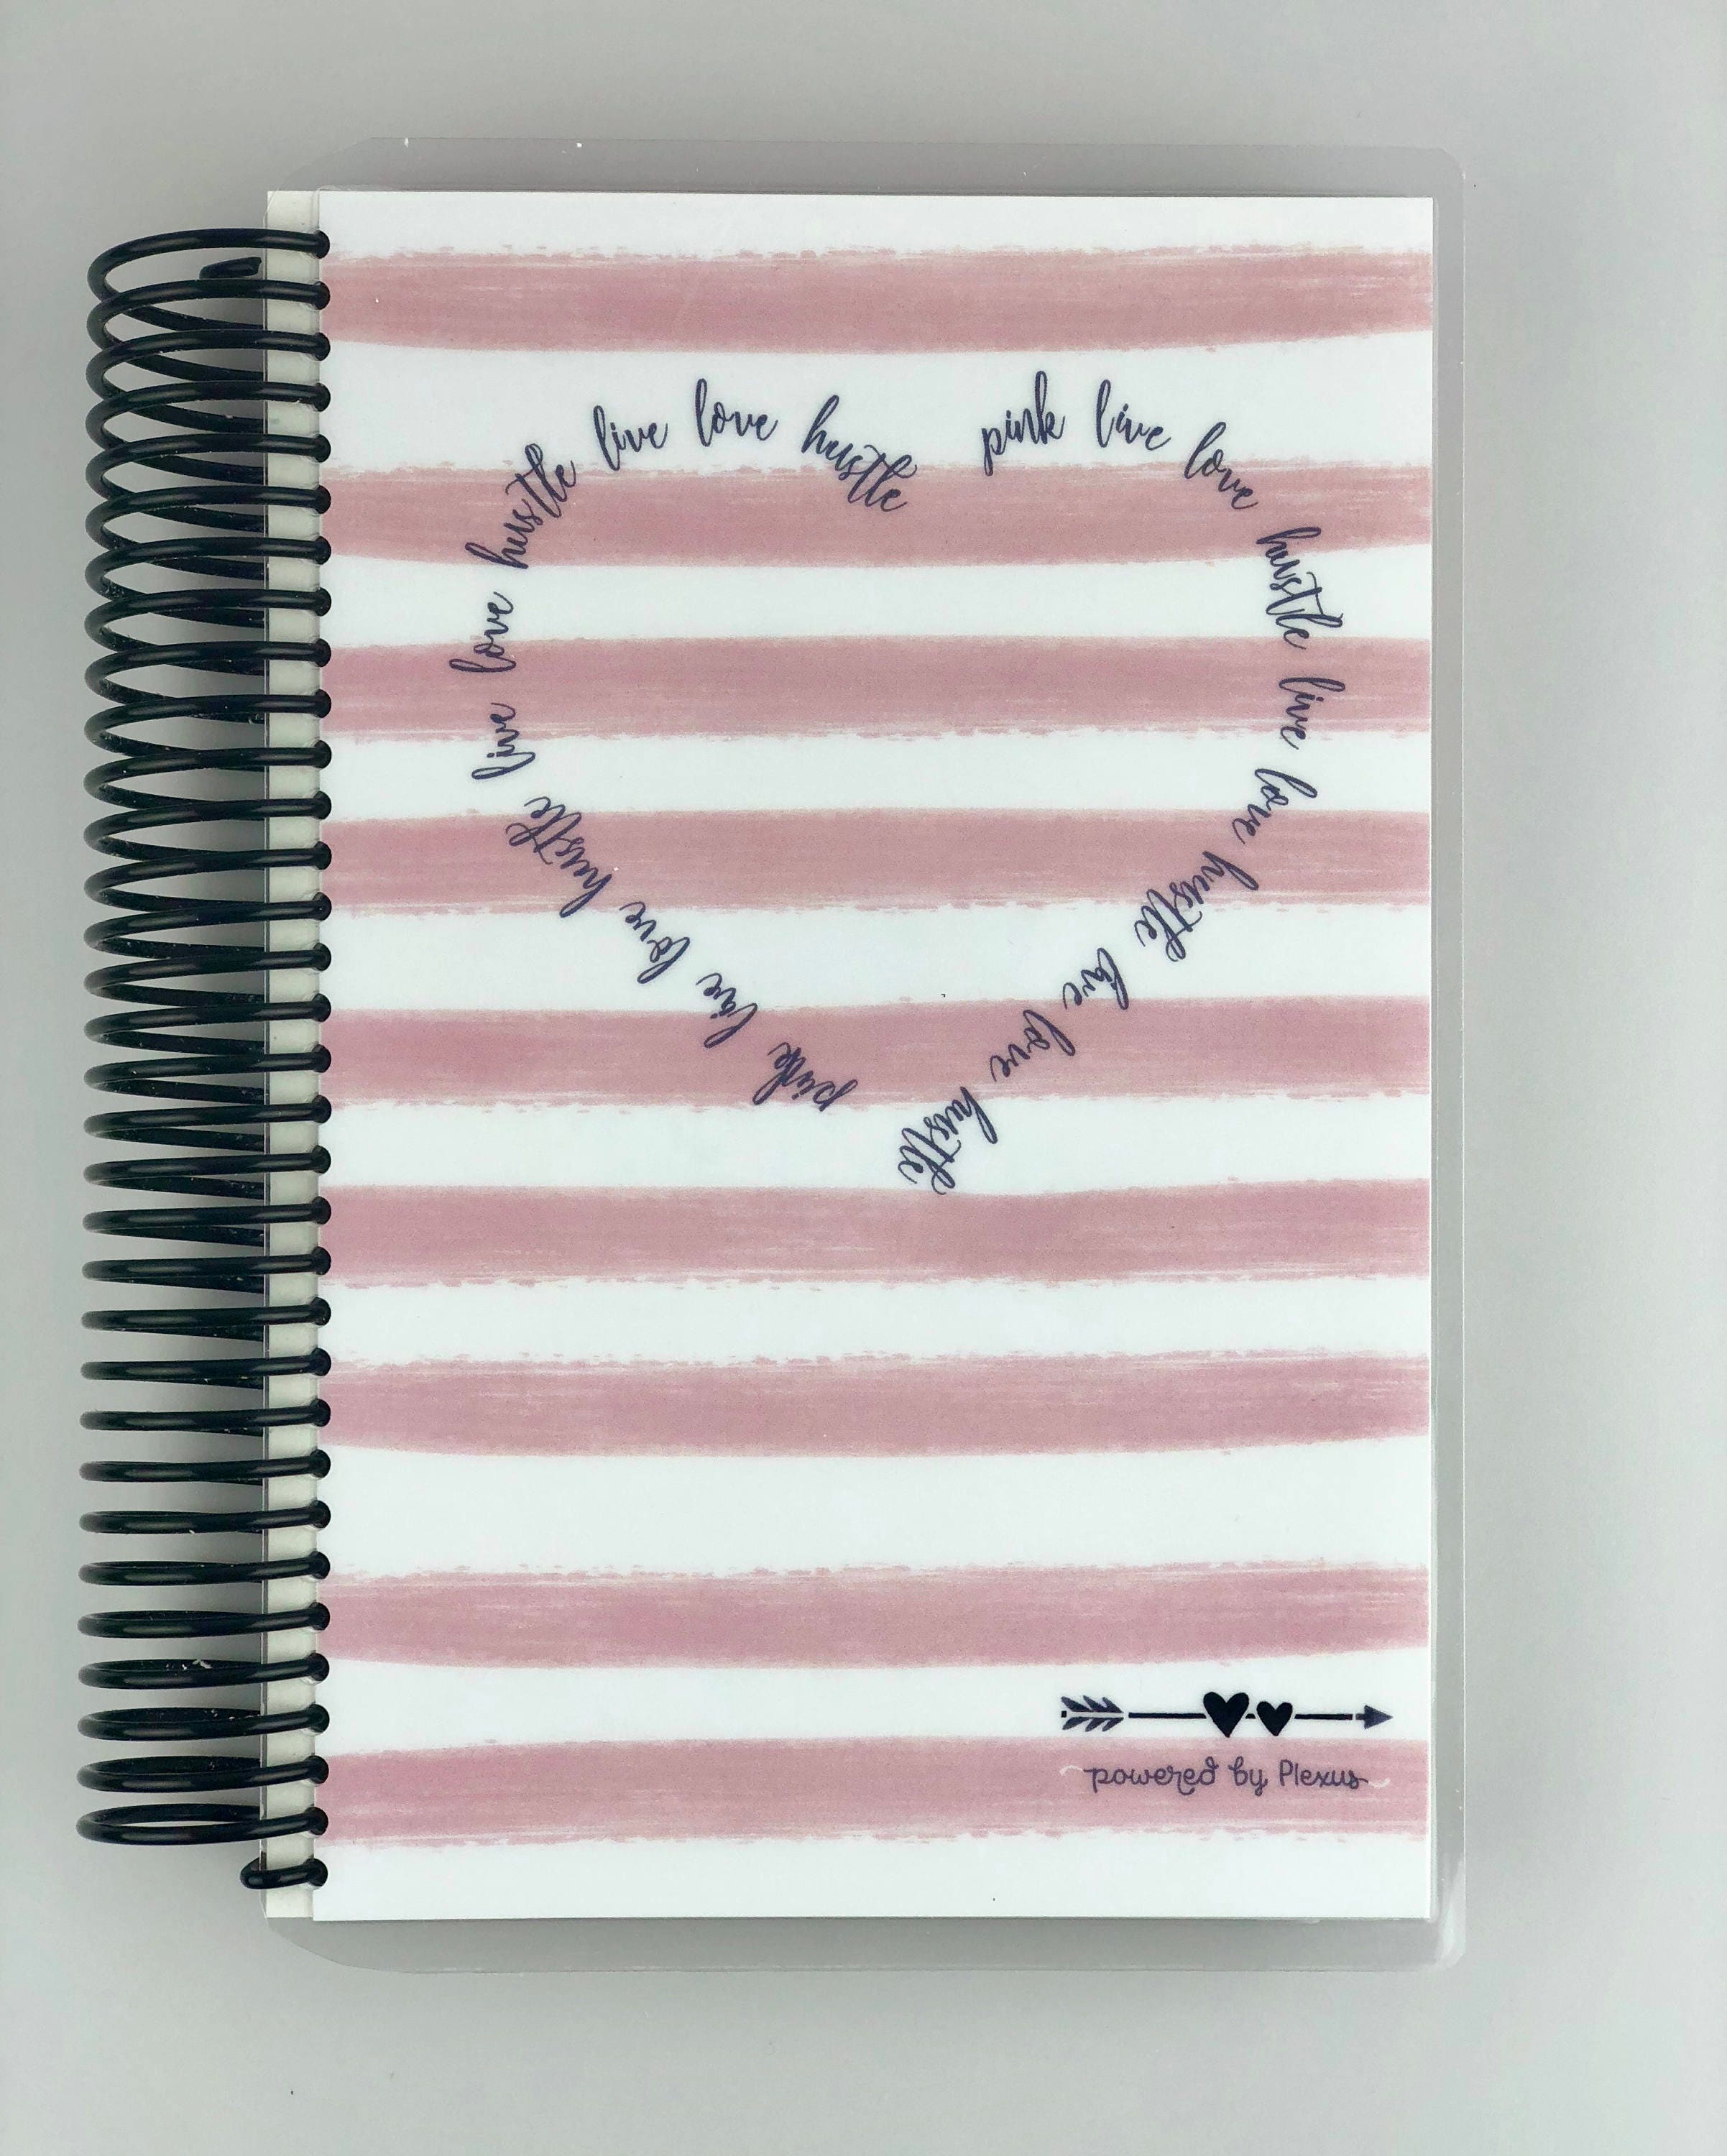 pink live love hustle live love hustle live love hustle
pink live love hustle live love hustle live love hustle
powered by Plexus